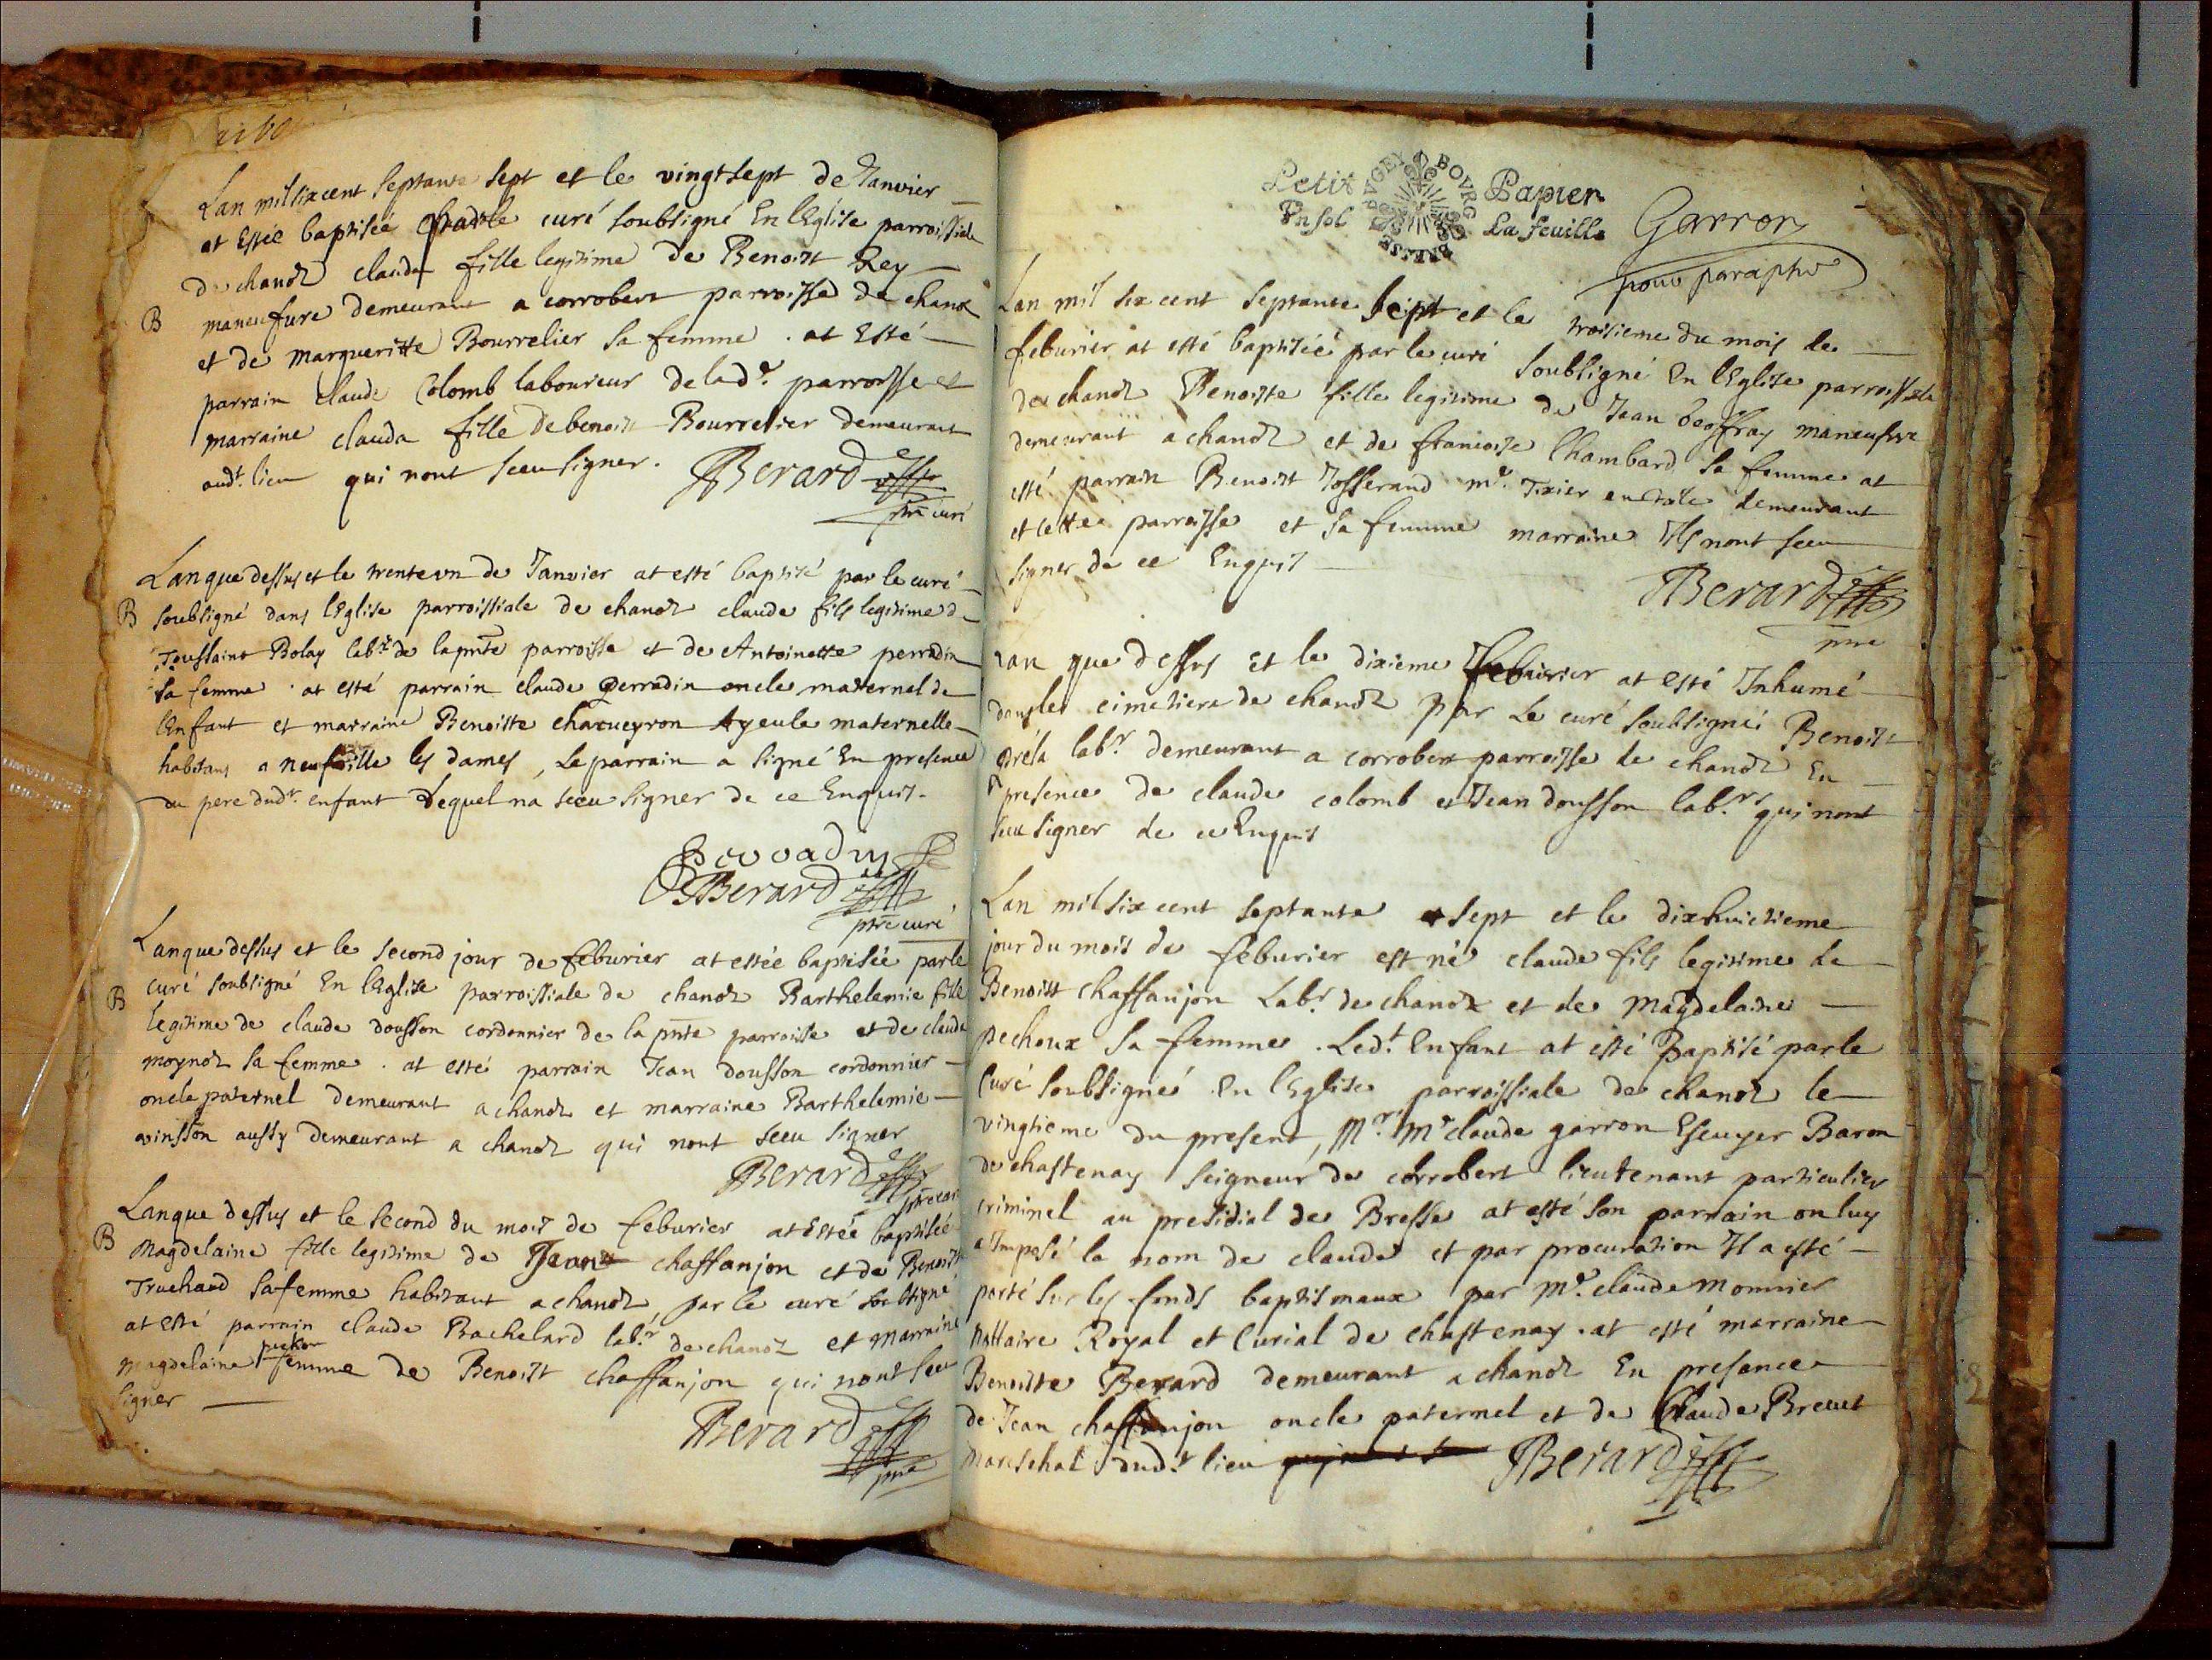 Lan mil six cent septante sept et le vingt sept de Janvier
at estée baptisée par le curé soubsigné En lEglise parroissiale
de chanoz clauda fille legitime de Benoist Rey
B maneufure demeurant a corrobert parroisse de chanoz
et de margueritte Bourrelier sa femme . at Esté
parrain claude Colomb laboureur de lade. parroisse et
marraine clauda fille de benoist Bourrelier demeurant
audt. lieu qui nont sceu signer. Berard
ptre curé
Lan que dessus et le trente vn de Janvier at esté baptisé par le curé
B soubsigné dans lEglise parroissiale de chanoz claude fils legitime de
Toussaint Bolay labr. de la pnte parroisse et de Antoinette perradin
sa femme . at esté parrain claude perradin oncle maternel de
lEnfant et marraine Benoiste charueyron Ayeule maternelle
habitans a neufville les dames, Le parrain a signé En presence
du pere dudt. enfant Lequel na sceu signer de ce Enquis.
Perradin
Berard
ptre curé
Lan que dessus et le second jour de feburier at estée baptisée par le
B curé soubsigné En lEglise parroissiale de chanoz Barthelemie fille
legitime de claude dousson cordonnier de la pnte parroisse et de clauda
moynoz sa femme . at esté parrain Jean dousson cordonnier
oncle paternel demeurant a chanoz et marraine Barthelemie
vinsson aussy demeurant a chanoz qui nont sceu signer
Berard
ptre curé
Lan que dessus et le second du mois de feburier at Estée baptisée
B Magdelaine fille legitime de Jean chaffanjon et de Benoiste
Truchard sa femme habitant a chanoz, par le curé soubsigné
at esté parrain claude Bachelard labr. de chanoz et marraine
pechou
Magdelaine femme de Benoist chaffanjon qui nont sceu
signer
Berard
ptre
Petit Papier
Vn sol La feuille
BVGEY BOVRG BRESSE
Garron
pour paraphe
Lan mil six cent septante sept et le troisieme du mois de
feburier at esté baptisée par le curé soubsigné En lEglise parroissiale
de chanoz Benoiste fille legitime de Jean beoffray maneufure
demeurant a chanoz et de francoise Chambard sa femme at
esté parrain Benoist Josserand me. Tixier en toile demeurant
et cette parroisse et sa femme marraine Ils nont sceu
signer de ce Enquis
Berard
ptre
Lan que dessus et le dixieme feburier at esté Inhumé
dans le cimetiere de chanoz par Le curé soubsigné Benoist
labr. demeurant a corrobert parroisse de chanoz En
presence de claude colomb et Jean dousson labrs. qui nont
sceu signer de ce Enquis
Lan mil six cent septante et sept et le dixhuictieme
jour du mois de feburier est né claude fils legitime de
Benoist chaffanjon Labr. de chanoz et de Magdelaine
pechoux sa femme . Ledt. Enfant at esté Baptisé par le
Curé soubsigné En lEglise parroissiale de chanoz le
vingtieme du present, Mr. Me claude garron Escuyer Baron
de chastenay seigneur de corrobert lieutenant particulier
criminel au presidial de Bresse at esté son parrain on luy
a Imposé le nom de claude et par procuration Il a esté
porté sur les fonds baptismaux par Me. claude monnier
Nottaire Royal et Curial de chastenay . at esté marraine
Benoiste Berard demeurant a chanoz En presence
de Jean chaffanjon oncle paternel et de Claude Brevet
mareschal dudt lieu Berard